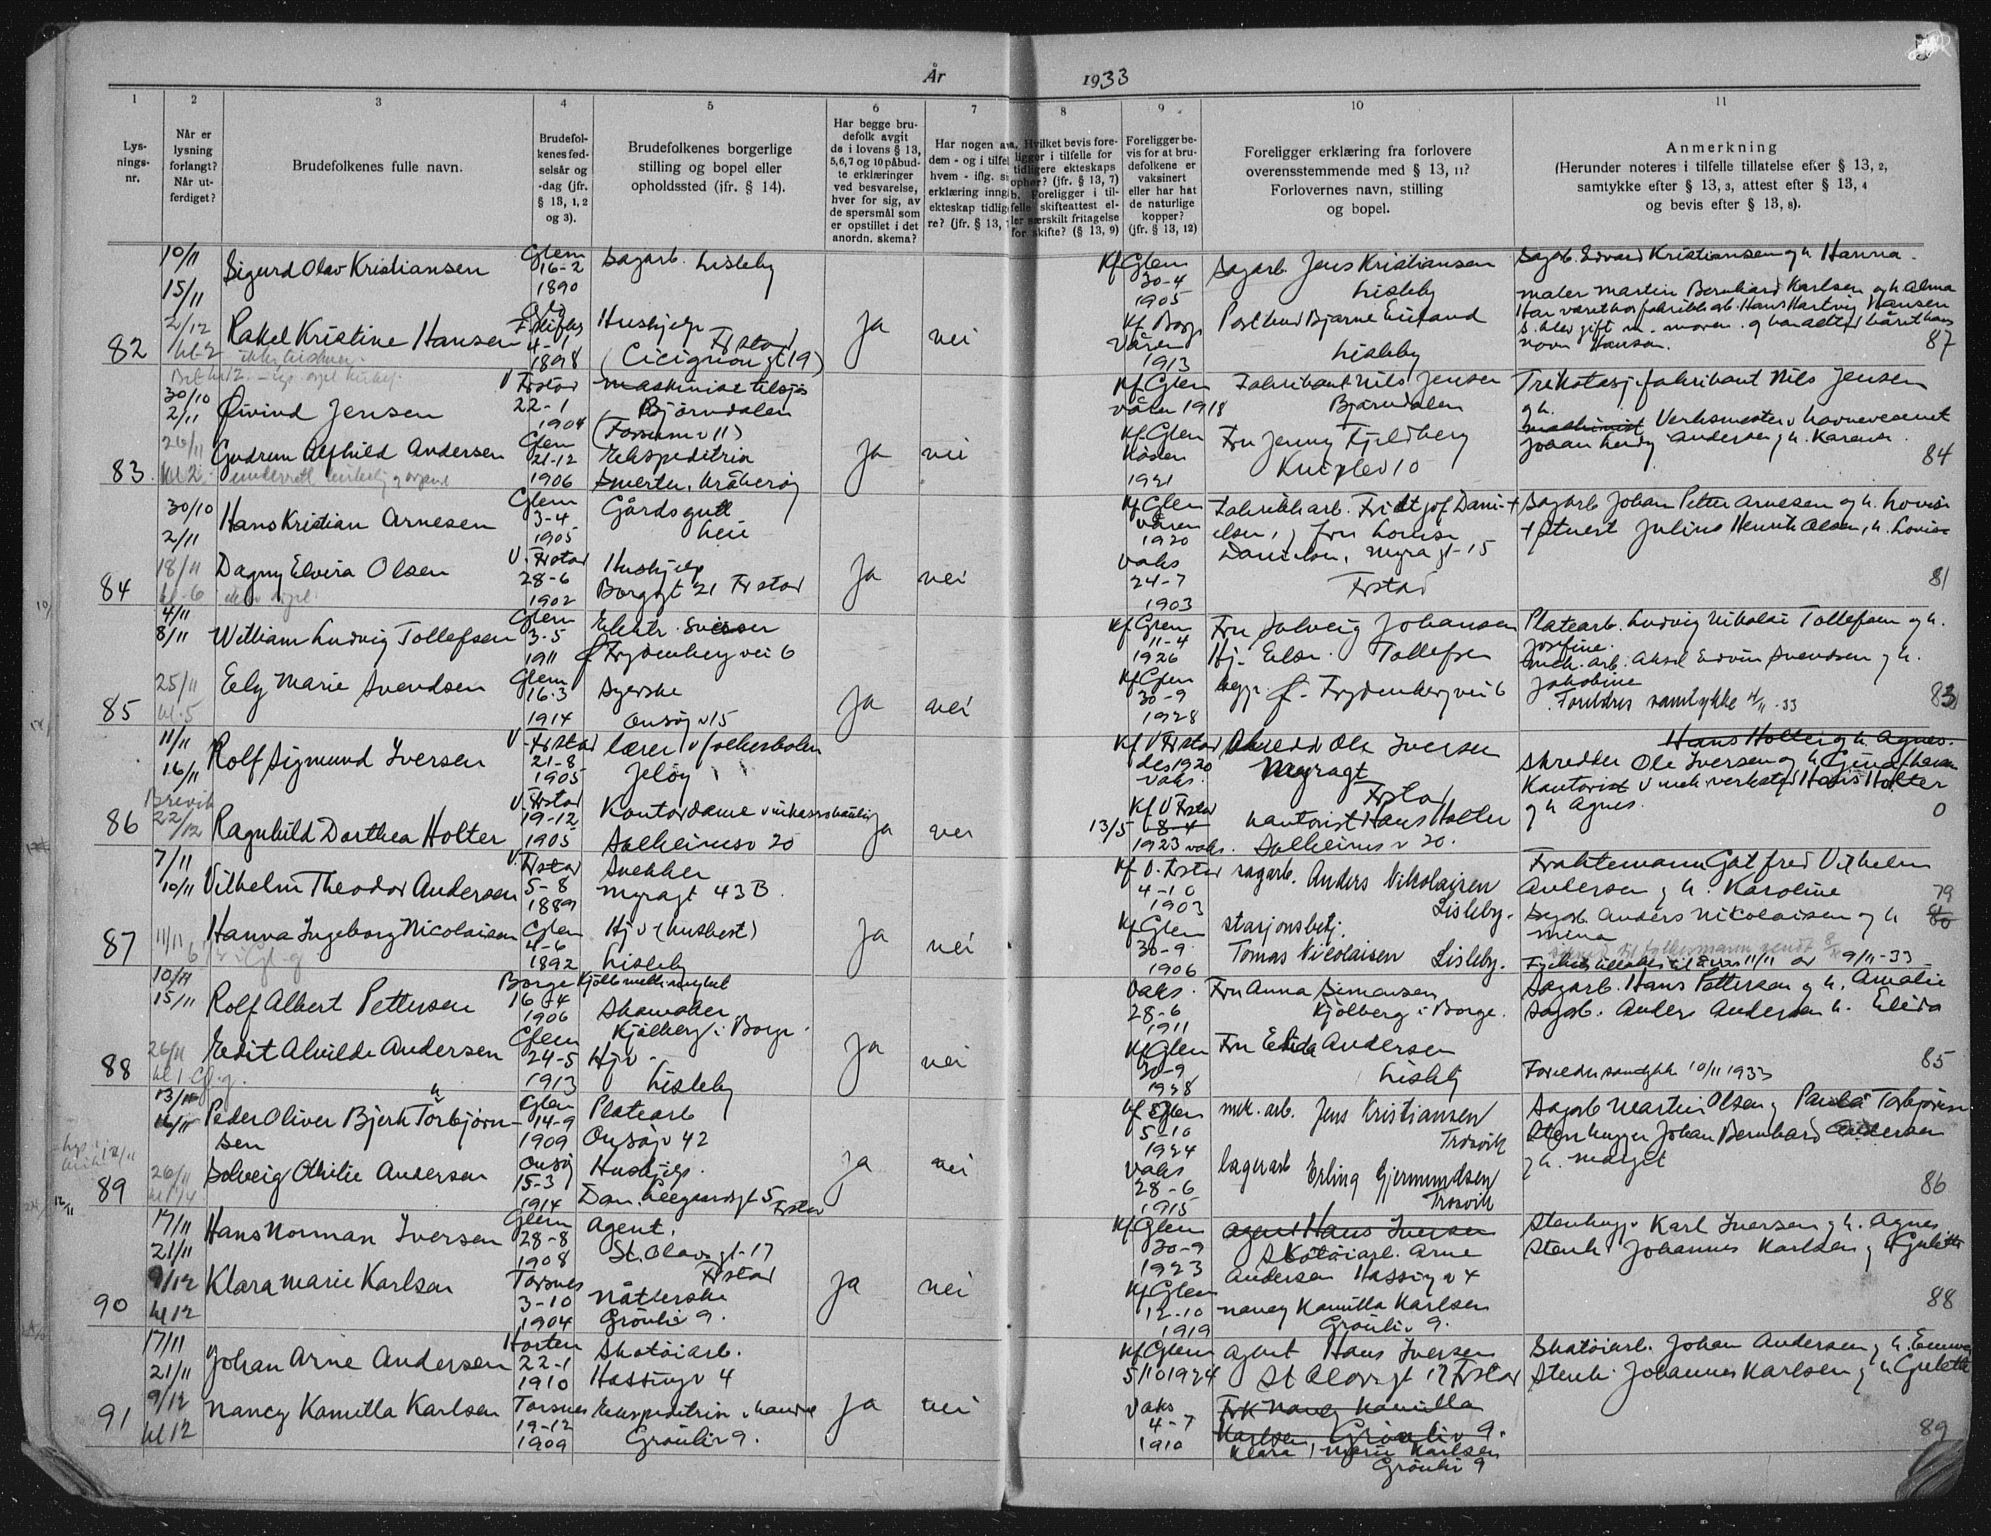 År 1933
1 2 3 4 5 6 7 8 9 10 11
Lys-
nings-
nr.
Når er
lysning
forlangt?
Når ut-
ferdiget?
Brudefolkenes fulle navn.
Brudefol-
kenes fød-
selsår og
-dag (jfr.
§ 13, 1, 2
og 3).
Brudefolkenes borgerlige
stilling og bopel eller
opholdssted (jfr. § 14).
Har begge bru-
defolk avgit
de i lovens § 13,
5,6,7 og 10 påbud-
te erklæringer
ved besvarelse,
hver for sig, av
de spørsmål som
er opstillet i det
anordn. skema?
Har nogen av
dem - og i tilfel
hvem - iflg. si
erklæring inngå
ekteskap tidlig
re? (jfr. § 13,
a. Hvilket bevis fore-
ligger i tilfelle for
tidligere ekteskaps
ophør? (jfr. § 13, 7)
b. Foreligger i til-
felle skifteattest el-
ler særskilt fritagelse
for skifte? (§ 13, 9)
Foreligger be-
vis for at bru-
defolkene er
vaksinert
eller har hat
de naturlige
kopper?
(jfr. § 13, 12)
Foreligger erklæring fra forlovere
overensstemmende med § 13, 11?
Forlovernes navn, stilling
og bopel.
Anmerkning
(Herunder noteres i tilfelle tillatelse efter § 13, 2,
samtykke efter § 13, 3, attest efter § 13, 4
og bevis efter § 13, 8).
82
10/11
15/11
2/12
kl-2
Sigurd Olav Kristiansen
Rakel Kristine Hansen
Glem
16-2
1890
4-1
1898
Sagarb. Lisleby
Hushjelp
Frstad
(Cicignon gt 19)
Ja nei
Kf Glem
30-4
1905
Kf. Borge
Våren
1913
Sagarb. Jens Kristiansen
Lisleby
Postbud Bjarne
Lisleby
Sagarb. Edvard Kristiansen og h. Hanna.
Maler Martin Bernhard Karlsen og h. Alma
navn Hansen.
87
83.
30/10
2/11
26/11
kl 2
Øivind Jensen
Gudrun Alfhild Andersen
V Frstad
22-1
1904
Glem
21-12
1906
Maskinist tilsjøs
Bjørndalen
(Fossum v 11)
Ekspeditrise
Smertu. Kråkerøy
Ja nei
Kf. Glem
våren 1918
Kf. Glem
Høsten
1921
Fabrikant Nils Jensen
Bjørndalen
Fru Jenny Fjeldberg
Kniplev 10
Trikotasjefabrikant Nils Jensen
og h.
maskinist Verksmester v havnevesenet
Johan Henry Andersen og h. Karen.
84
84
30/10
2/11
18/11
kl-6
Hans Kristian Arnesen
Dagny Elvira Olsen
Glem
3-4
1905
V. Frstad
28-6
1902
Gårdsgutt
Leie
Hushjelp
Borggt 21 Frstad
Ja nei
Kf Glem
våren
1920
Vaks
24-7
1903
Fabrikkarb. Fridtjof Dani-
elsen, Fru Lovise
Danielsen, Myragt-15
Frstad
+ Sagarb Johan Petter Arnesen og h. Lovise
+ Stuert Julius Henrik Olsen, h. Lovise
81
85
4/11
8/11
25/11
kl.5
William Ludvig Tollefsen
Elly Marie Svendsen
Glem
3-5
1911
Glem
16.3
1914
Elektr. Sveiser
Frydenberg vei 6
Syerske
Onsøy v 15
Ja nei
Kf. Glem
11-4
1926
Kf Glem
30-9
1928
Fru Solveig Johansen
Hj. Else Tollefsen
begge Frydenbergvei 6
Platearb. Ludvig Nikolai Tollefsen og h.
Josefine.
Mek. arb. Aksel Edvin Svendsen og h.
Jakobine
Foreldres samtykke 4/11-33
83
86
11/11
16/11
Brevik
22/12
Rolf Sigmund Iversen
Ragnhild Dorthea Holter
V. Frstad
21-8
1905
V. Frstad
19-12
1905
lærer v folkeskolen
Jeløy
Kontordame
Solheimsv 20
Ja nei
Kf V Frstad
des 1920
Vaks.
Kf V Frstad
13/5 8-4
1923 vaks.
Skredder Ole Iversen
Myragt
Frstad
Kontorist Hans Holter
Solheims v 20.
Hans Holter og h. Agnes.
Skredder Ole Iversen og h
Kontorist v mek verksted Hans Holter
og h Agnes.
0
87
7/11
10/11
11/11
Vilhelm Theodor Andersen
Hanna Ingeborg Nicolaisen
V. Frstad
5-8
1889
Glem
4-6
1892
Snekker
Myragt 43 B.
Hj v (husbest)
Lisleby
Ja nei
Kf V. Frstad
4-10
1903
Kf Glem
30-9
1906
sagarb. Anders Nikolaisen
Lisleby.
stasjonsbetj.
Tomas Nicolaisen Lisleby.
Fraktemann Gotfred Vilhelm
Andersen og h. Karoline
Sagarb. Anders Nikolaisen og h
Mina
79
80
88
10/11
15/11
26/11
kl 1
Rolf Albert Pettersen
Edit Alvilde Andersen
Borge
16-4
1906
Glem
24-5
1913
Skomaker
Kjølberg i Borge.
Hj v -
Lisleby
Ja nei
Vaks.
28-6
1911
Kf Glem
30-9
1928
Fru Anna Simensen
Kjølberg i Borge.
Fru Elida Andersen
Lisleby
Sagarb. Hans Petterson og h. Amalie
Sagarb. Anders Andersen h. Elida
Foreldres samtykke 10/11 1933
85
89
13/11
16/11
26/11
Peder Oliver Bjerk Torbjørn-
sen
Solveig Othilie Andersen
Glem
14-9
1909
Onsøy
15-3
1914
Platearb
Onsøyv 42
Hushjelp.
Dan. Leegaardsgt 5
Frstad
Ja nei
Kf. Glem
5-10
1924
Vaks
28-6
1915
mek. arb. Jens Kristiansen
Trosvik
lagerarb Erling Gjermundsen
Trosvik
Sagarb Martin Olsen og Paula Torbjørnsen
Stenhugger Johan Bernhard Andersen
og h. Margit
86
90
17/11
21/11
9/12
kl 12
Hans Norman Iversen
Klara Marie Karlsen
Glem
28-8
1908
Torsnes
3-10
1904
Agent.
St. Olavs gt-17
Frstad
Nåtlerske
Grønliv 9.
Ja nei
Kf Glem
30-9
1923
Kf Glem
12-10
1919
Agent Hans Iversen
Skotøiarb. Arne
Andersen Hassingv 4
Nancy Kamilla Karlsen
Grønliv 9.
Stenhugg. Karl Iversen og h. Agnes
Stenh. Johannes Karlsen og h Gulette
88
91
17/11
21/11
9/12
kl 12
Johan Arne Andersen
Nancy Kamilla Karlsen
Horten
22-1
1910
Torsnes
19-12
1909
Skotøiarb.
Hassingv 4
Ekspeditrise
Grønliv 9.
Ja nei
Kf Glem
5/10 1924
Vaks
4-7
1910
Agent Hans Iversen
St Olavsgt 17 Frstad
Frk Nancy Kamilla
Karlsen Grønliv 9.
Klara Marie Karlsen
Grønliv 9
Skotøiarb. Johan Andersen og h. Emma
Stenh. Johannes Karlsen og h Gulette
89